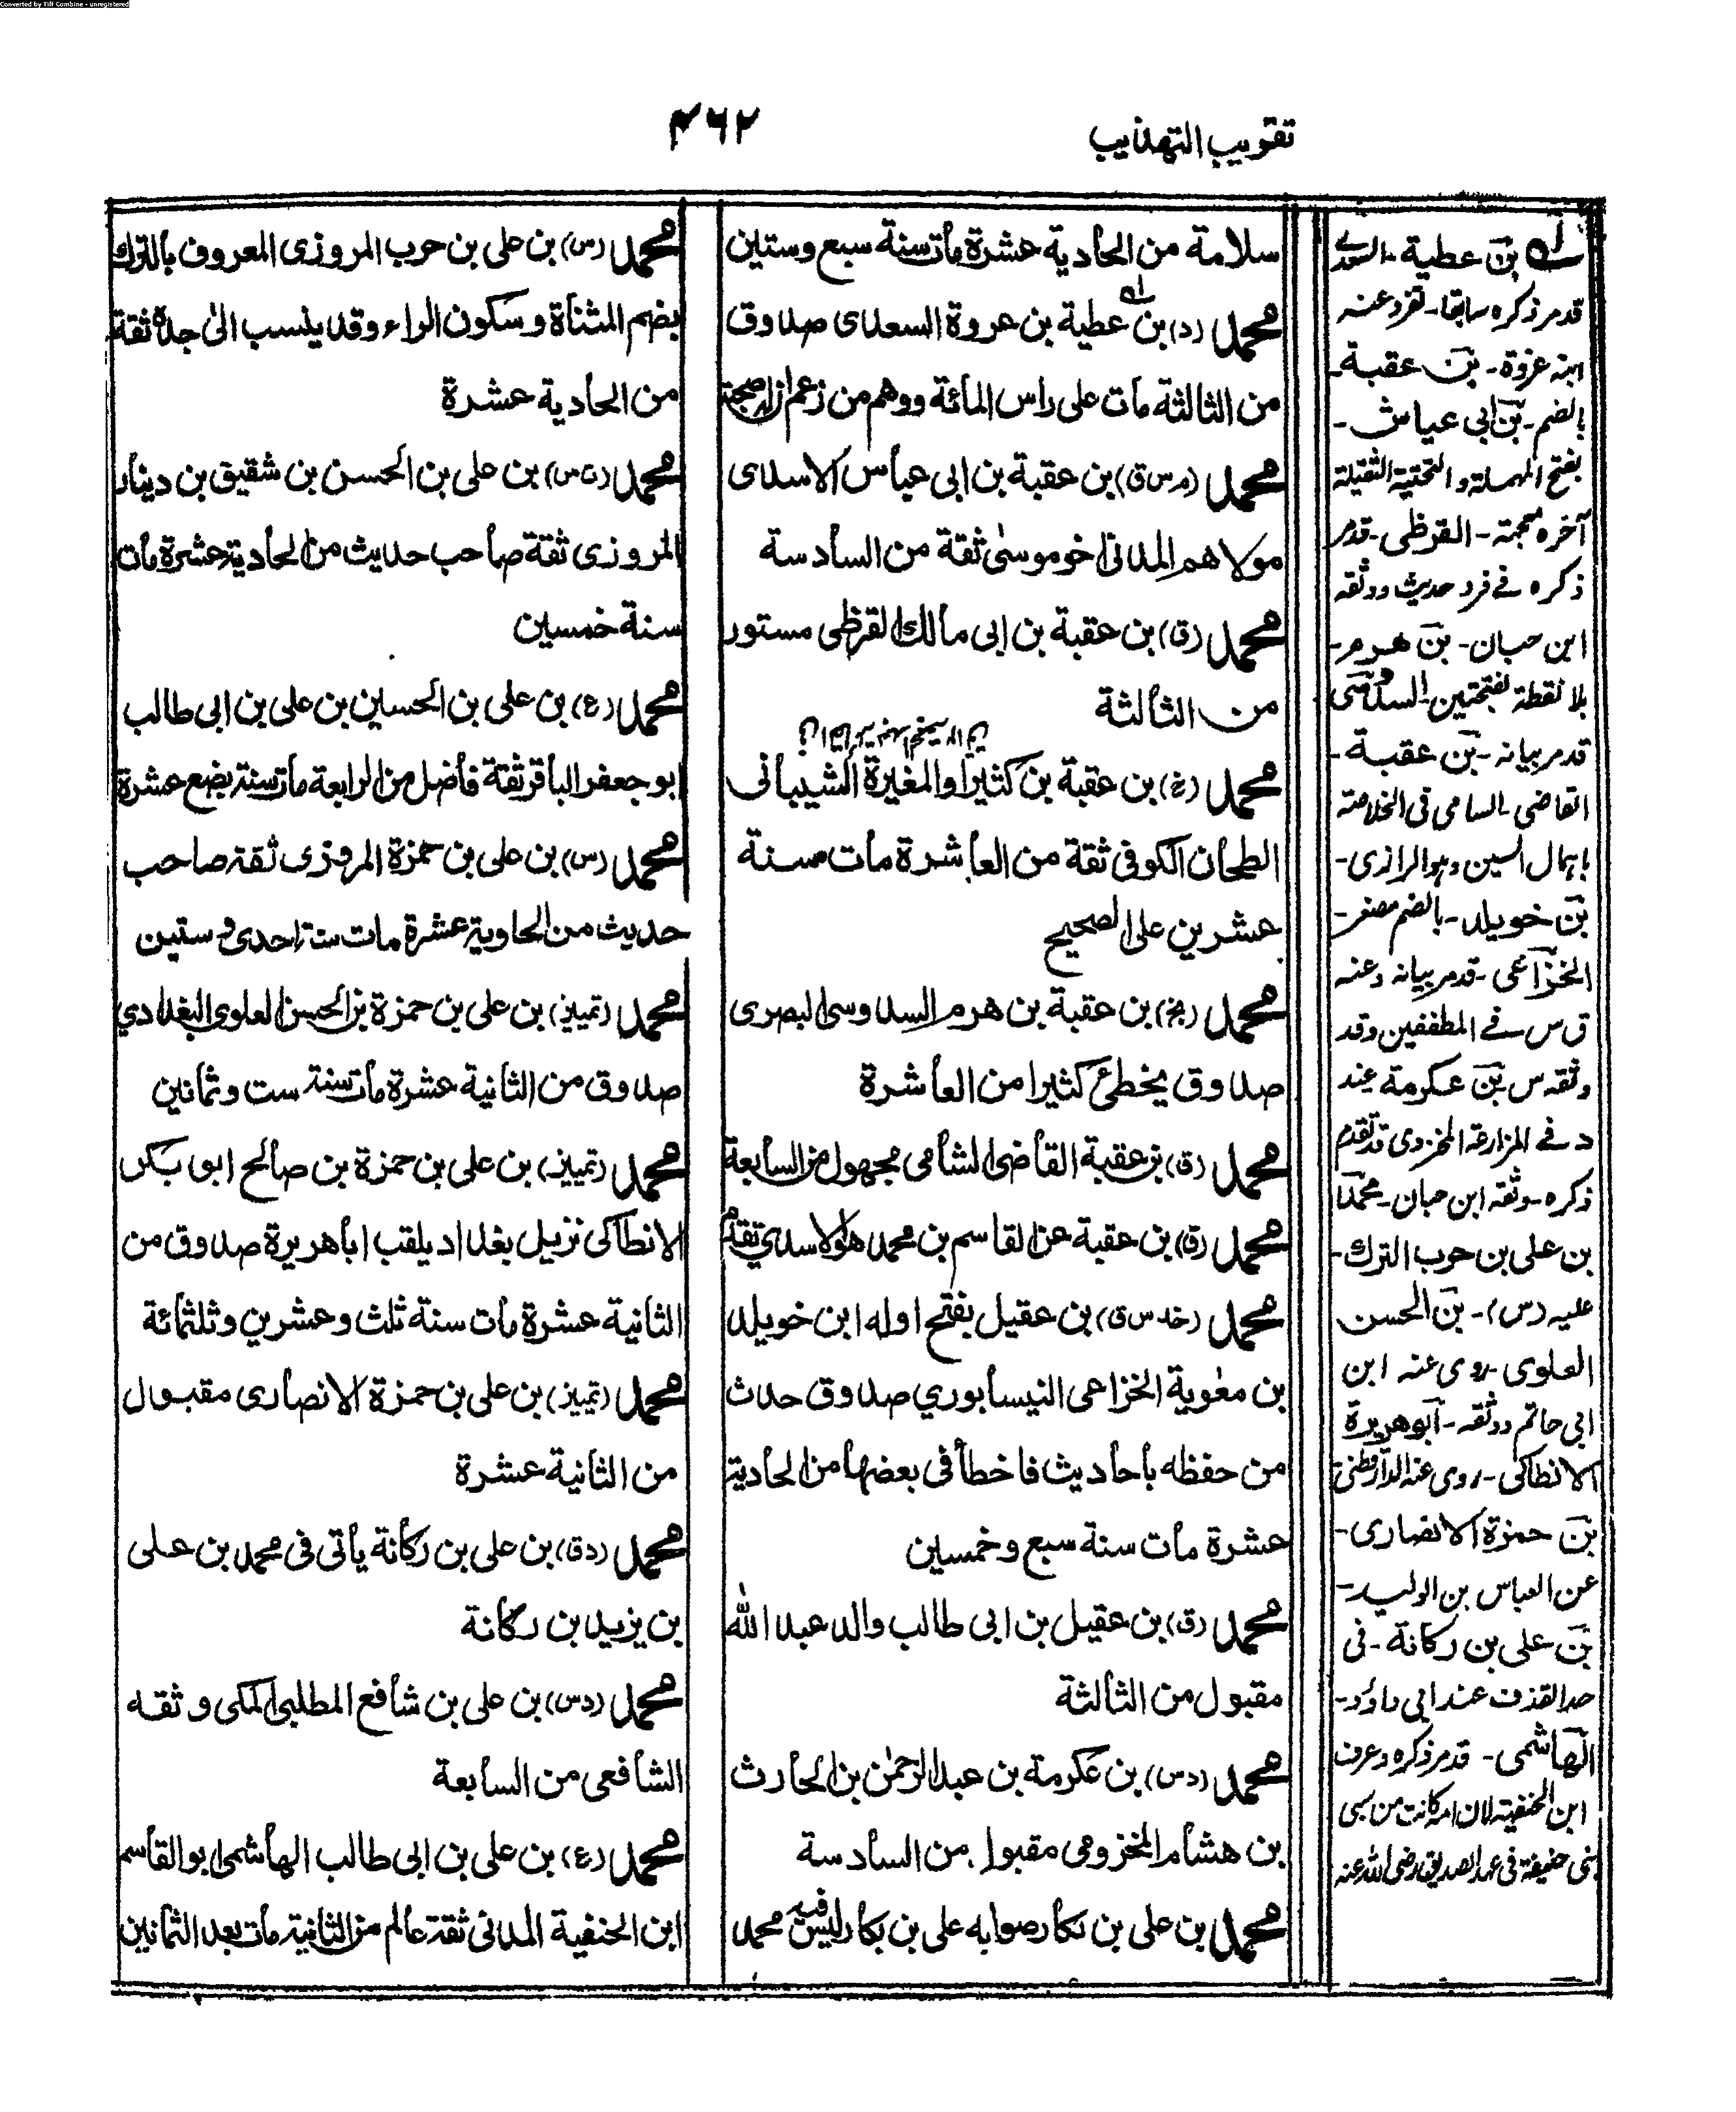 Converted by Tiff Combine - unregistered
تقريب التهذيب
٤٦٢
سلامة من الحادية عشرة مات سنة سبع وستين
محمد (د) بن عطية بن عروة السعدى صدوق
من الثالثة مات على راس المائة ووهم من زعم ان له صحبة
محمد (م س ق) بن عقبة بن ابى عياش الاسدى
مولاهم المدنى اخو موسىٰ ثقة من السادسة
محمد (ق) بن عقبة بن ابى مالك القرظى مستور
من الثالثة
محمد (خ) بن عقبة بن كثير او المغيرة الشيبانى
الطحان الكوفى ثقة من العاشرة مات سنة
عشرين على الصحيح
محمد (بخ) بن عقبة بن هرم السدوسى البصرى
صدوق يخطئ كثيرا من العاشرة
محمد (ق) بن عقبة القاضى الشامى مجهول من السابعة
محمد (ق) بن عقبة عن القاسم بن محمد هو الاسدي تقدم
محمد (خد س ق) بن عقيل بفتح اوله ابن خويلد
بن معٰوية الخزاعى النيسابوري صدوق حدث
من حفظه بأحاديث فاخطأ فى بعضها من الحادية
عشرة مات سنة سبع وخمسين
محمد (ق) بن عقيل بن ابى طالب والد عبد الله
مقبول من الثالثة
محمد (د س) بن عكرمة بن عبد الرحمٰن بن الحارث
بن هشام المخزومى مقبول من السادسة
محمد بن على بن بكار صوابه على بن بكار ليس فيه محمد
محمد (س) بن على بن حرب المروزى المعروف بالترك
بضم المثناة وسكون الراء وقد ينسب الىٰ جده ثقة
من الحادية عشرة
محمد (ت س) بن على بن الحسن بن شقيق بن دينار
المروزى ثقة صاحب حديث من الحادية عشرة مات
سنة خمسين
محمد (ع) بن على بن الحسين بن على بن ابى طالب
ابو جعفر الباقر ثقة فاضل من الرابعة مات سنة بضع عشرة
محمد (س) بن على بن حمزة المروزى ثقة صاحب
حديث من الحادية عشرة مات سنة احدى وستين
محمد (تمييز) بن على بن حمزة بن الحسن العلوى البغدادي
صدوق من الثانية عشرة مات سنة ست وثمانين
محمد (تمييز) بن على بن حمزة بن صالح ابو بكر
الانطاكى نزيل بغداد يلقب اباهريرة صدوق من
الثانية عشرة مات سنة ثلث وعشرين وثلثمائة
محمد (تمييز) بن على بن حمزة الانصارى مقبول
من الثانية عشرة
محمد (د ق) بن على بن ركانة يأتى فى محمد بن على
بن يزيد بن ركانة
محمد (د س) بن على بن شافع المطلبى المكى وثقه
الشافعى من السابعة
محمد (ع) بن على بن ابى طالب الهاشمى ابو القاسم
ابن الحنفية المدنى ثقة عالم من الثانية مات بعد الثمانين
له بن عطية - السعدى
قد مر ذكره سابقا - تفرد عنه
ابنه عروة - بن عقبة -
بالضم - بن ابى عياش -
بفتح المهملة والتحتية الثقيلة
آخره معجمة - القرظى - قد مر
ذكره فے فرد حديث ووثقه
ابن حبان - بن هرم -
بلا نقطة بفتحتين السدوسى
قد مر بيانه - بن عقبة -
القاضى - السامى فى الخلاصة
باهمال السين وهو الرازى -
بن خويلد - بالضم مصغر -
الخزاعى - قد مر بيانه وعنه
ق س فے المطففين وقد
وثقه س بن عكرمة عند
د فے المزارعة المخزومى قد تقدم
ذكره - وثقه ابن حبان - محمد
بن على بن حرب الترك -
عليه (س) - بن الحسن
العلوى - روى عنه ابن
ابى حاتم ووثقه - ابو هريرة
الانطاكى - روى عنه الدارقطنى
بن حمزة الانصارى -
عن العباس بن الوليد -
بن على بن ركانة - فى
حد القذف عند ابى داؤد -
الهاشمى - قد مر ذكره وعرف
ابن الحنفية لان امه كانت من سبى
بنى حنيفة فى عهد الصديق رضى الله عنه